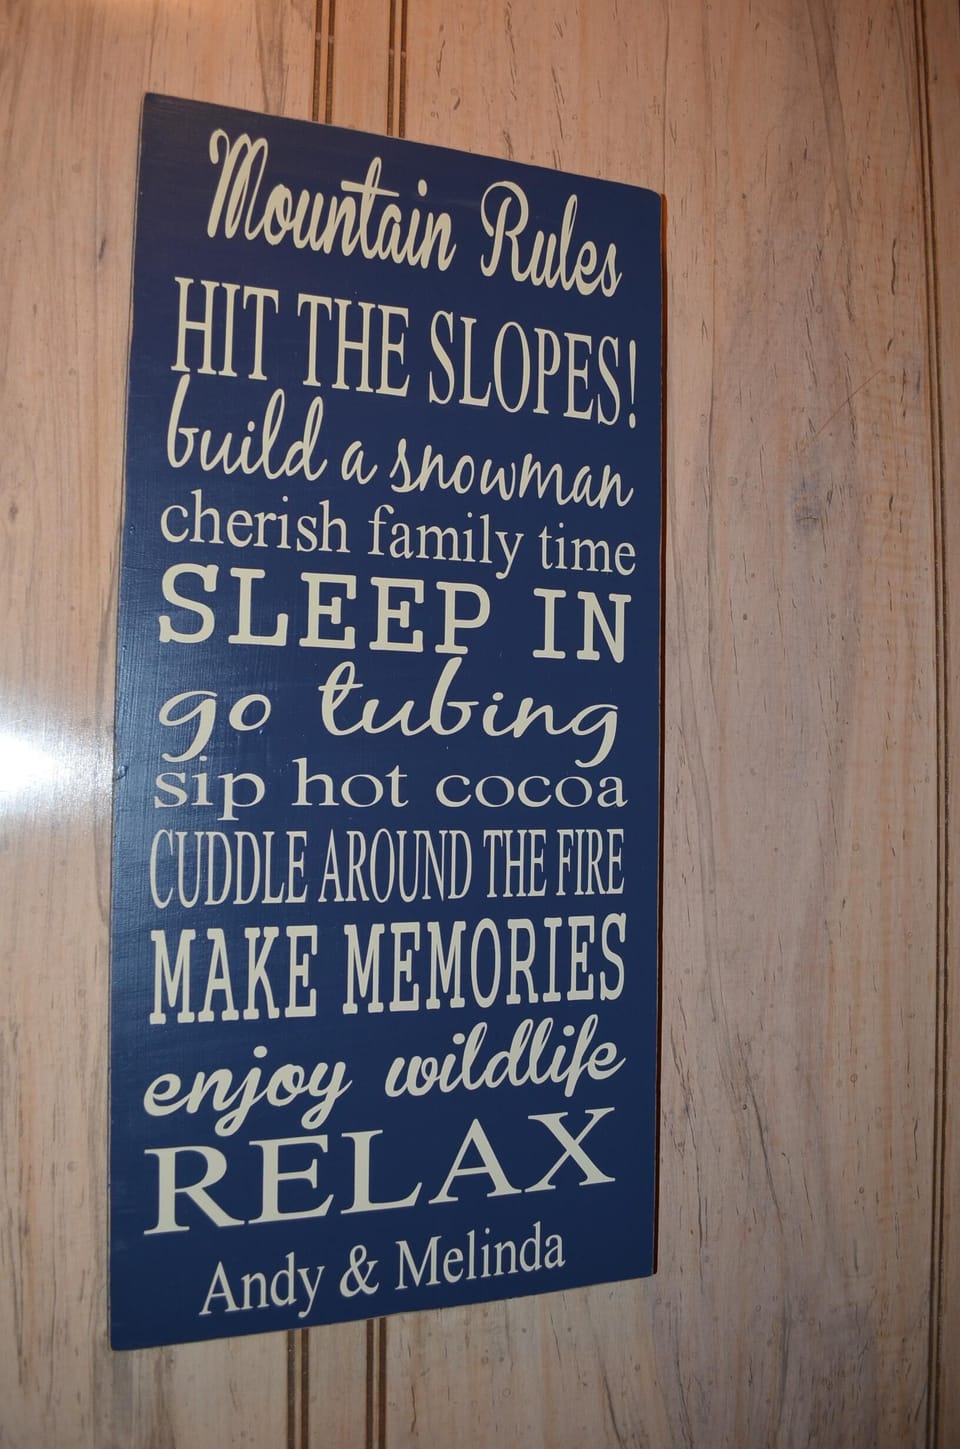 Mountain Rules
HIT THE SLOPES!
build a snowman
cherish family time
SLEEP IN
go tubing
sip hot cocoa
CUDDLE AROUND THE FIRE
MAKE MEMORIES
enjoy wildlife
RELAX
Andy & Melinda